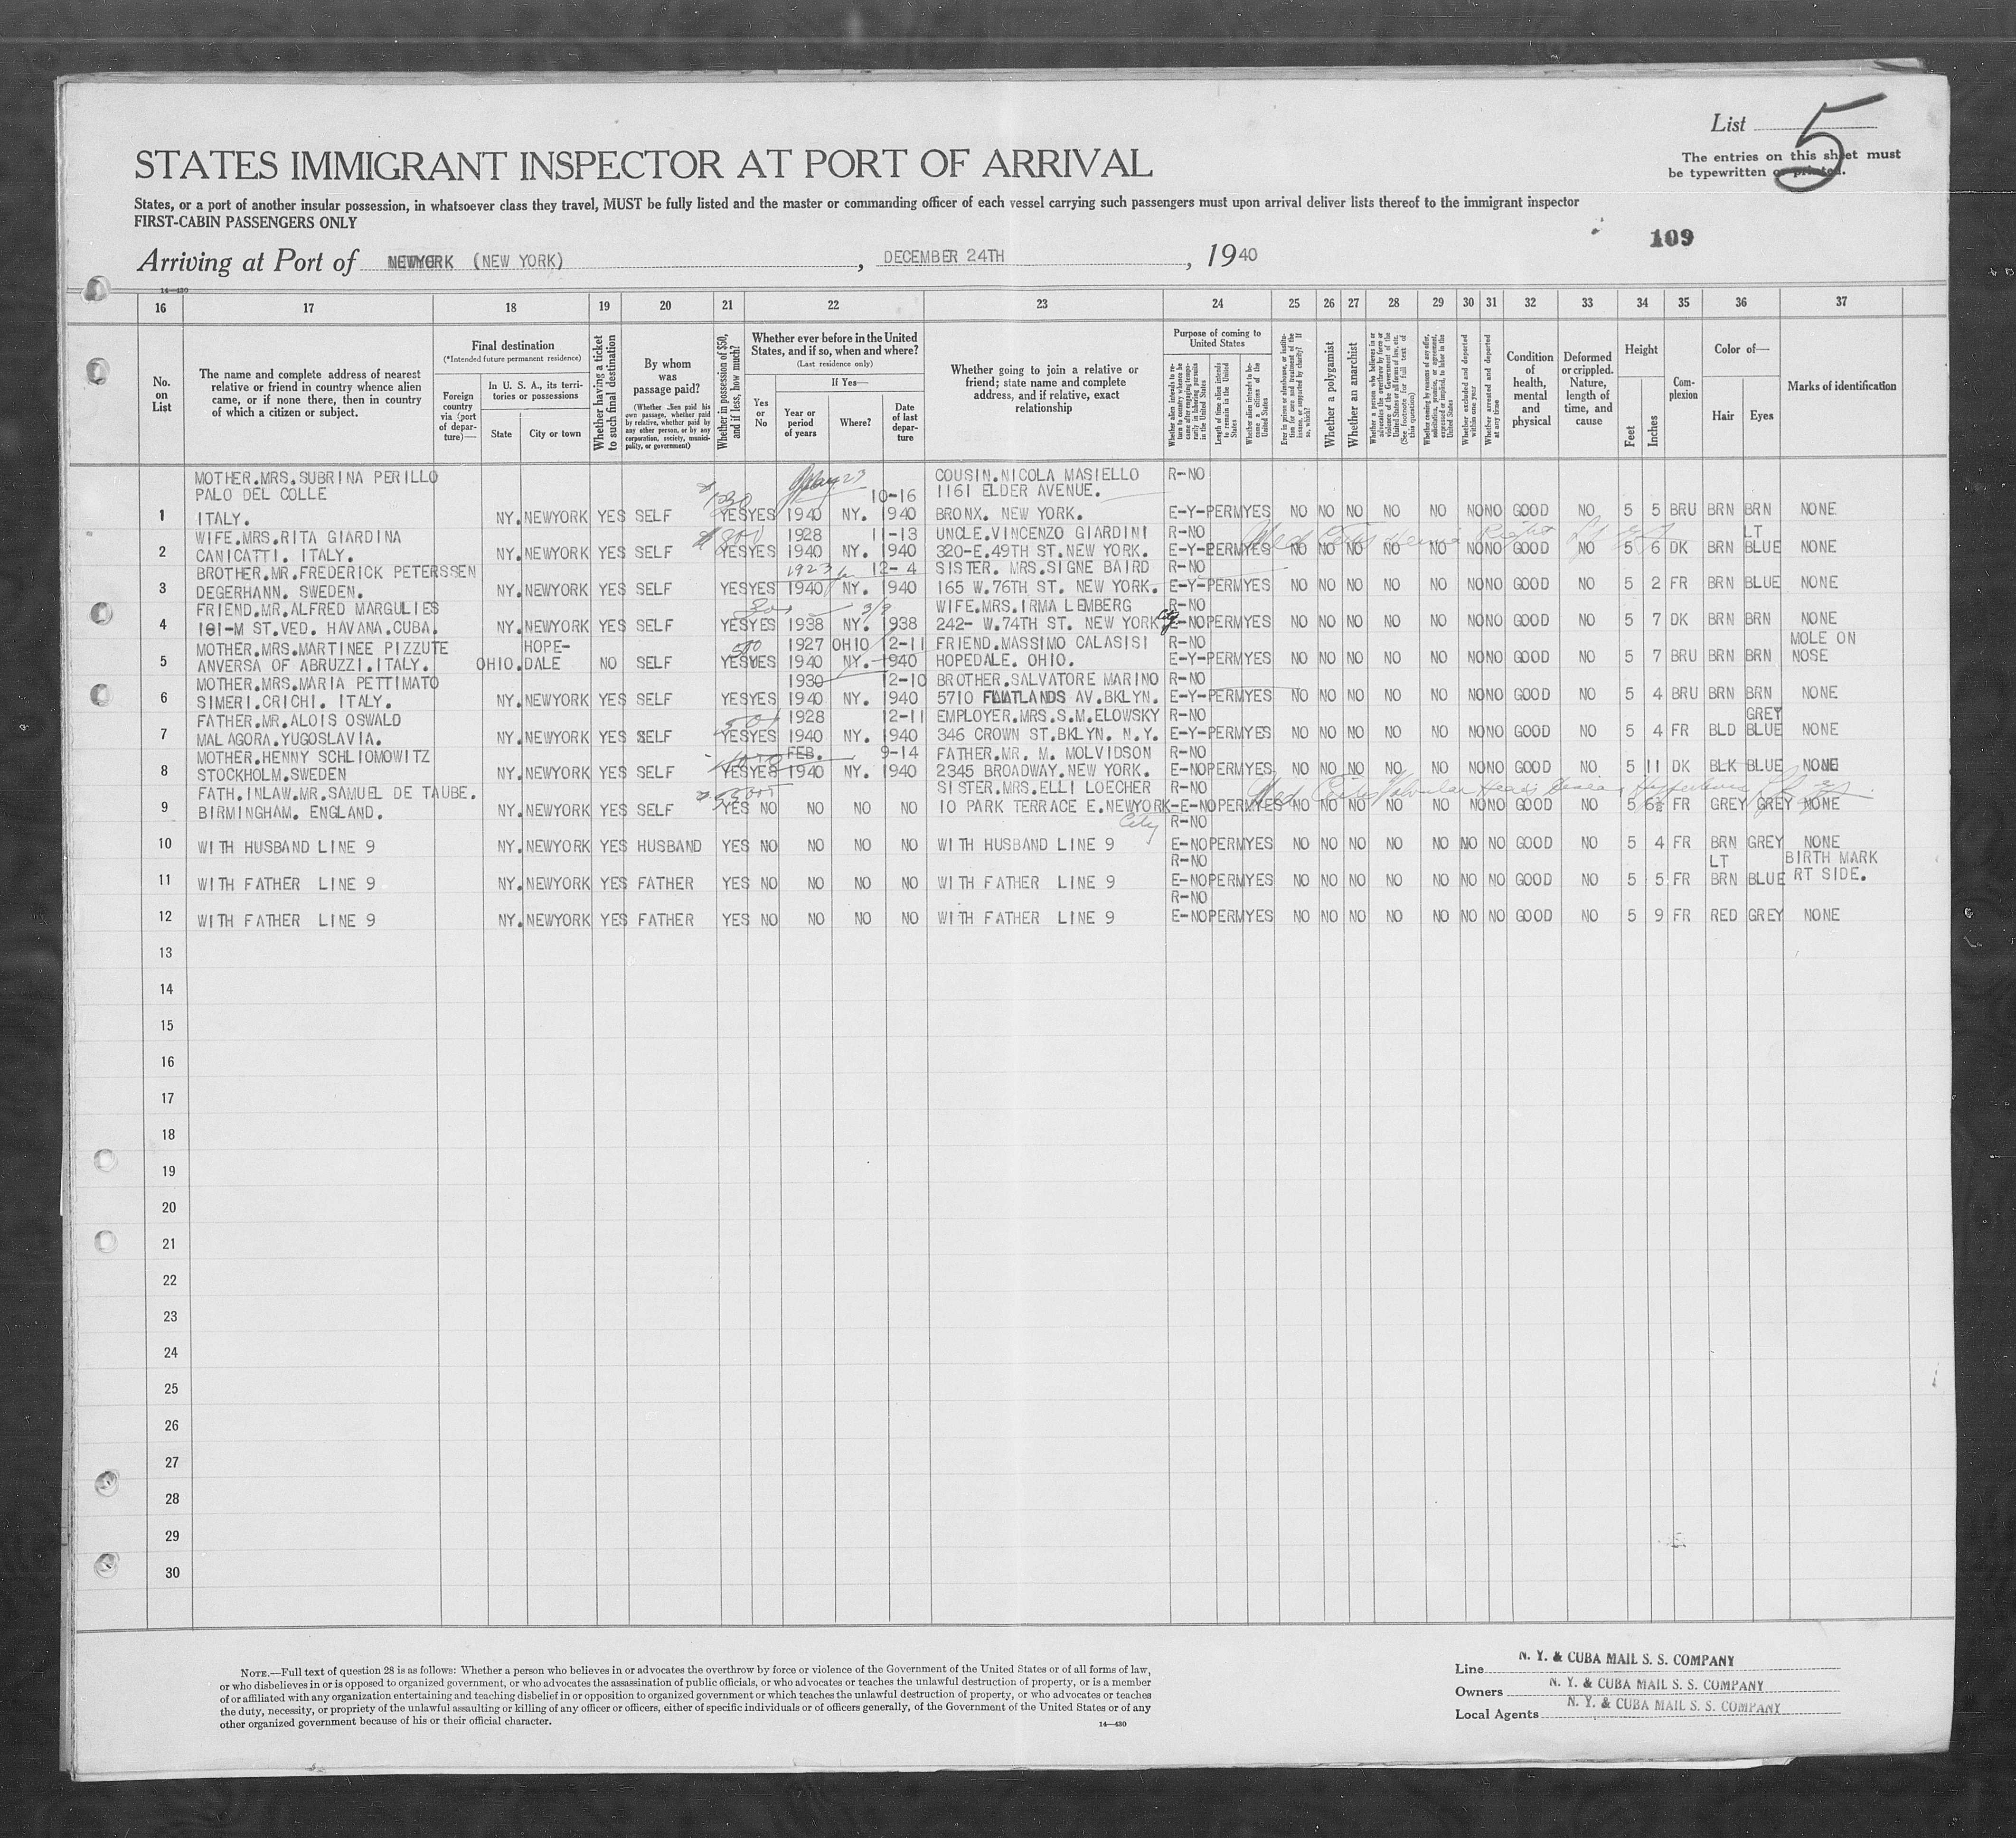 List 5
The entries on this sheet must
be typewritten or printed.
STATES IMMIGRANT INSPECTOR AT PORT OF ARRIVAL
States, or a port of another insular possession, in whatsoever class they travel, MUST be fully listed and the master or commanding officer of each vessel carrying such passengers must upon arrival deliver lists thereof to the immigrant inspector
FIRST-CABIN PASSENGERS ONLY
109
Arriving at Port of NEWYORK (NEW YORK), DECEMBER 24TH, 1940
14—430
16 17 18 19 20 21 22 23 24 25 26 27 28 29 30 31 32 33 34 35 36 37
No. on List
The name and complete address of nearest relative or friend in country whence alien came, or if none there, then in country of which a citizen or subject.
Final destination
(*Intended future permanent residence)
Foreign country via (port of departure)—
In U. S. A., its territories or possessions
State
City or town
Whether having a ticket to such final destination
By whom was passage paid?
(Whether alien paid his own passage, whether paid by relative, whether paid by any other person, or by any corporation, society, municipality, or government)
Whether in possession of $50, and if less, how much?
Whether ever before in the United States, and if so, when and where?
(Last residence only)
Yes or No
If Yes—
Year or period of years
Where?
Date of last departure
Whether going to join a relative or friend; state name and complete address, and if relative, exact relationship
Purpose of coming to United States
Whether alien intends to return to country whence he came after engaging temporarily in laboring pursuits in the United States
Length of time alien intends to remain in the United States
Whether alien intends to become a citizen of the United States
Ever in prison or almshouse, or institution for care and treatment of the insane, or supported by charity? If so, which?
Whether a polygamist
Whether an anarchist
Whether a person who believes in or advocates the overthrow by force or violence of the Government of the United States or all forms of law, etc. (See footnote for full text of this question)
Whether coming by reasons of any offer, solicitation, promise, or agreement, expressed or implied, to labor in the United States
Whether excluded and deported within one year
Whether arrested and deported at any time
Condition of health, mental and physical
Deformed or crippled. Nature, length of time, and cause
Height
Feet
Inches
Complexion
Color of—
Hair
Eyes
Marks of identification
MOTHER.MRS.SUBRINA PERILLO COUSIN.NICOLA MASIELLO R-NO
PALO DEL COLLE 10-16 1161 ELDER AVENUE.
1 ITALY. NY. NEWYORK YES SELF YES YES 1940 NY. 1940 BRONX. NEW YORK. E-Y-PERM YES NO NO NO NO NO NO NO GOOD NO 5 5 BRU BRN BRN NONE
WIFE.MRS.RITA GIARDINA 1928 11-13 UNCLE.VINCENZO GIARDINI R-NO LT
2 CANICATTI. ITALY. NY. NEWYORK YES SELF YES YES 1940 NY. 1940 320-E.49TH ST.NEW YORK. E-Y-PERM YES NO NO NO NO NO NO NO GOOD NO 5 6 DK BRN BLUE NONE
BROTHER.MR.FREDERICK PETERSSEN 1923 12-4 SISTER. MRS.SIGNE BAIRD R-NO
3 DEGERHANN. SWEDEN. NY. NEWYORK YES SELF YES YES 1940 NY. 1940 165 W.76TH ST. NEW YORK. E-Y-PERM YES NO NO NO NO NO NO NO GOOD NO 5 2 FR BRN BLUE NONE
FRIEND.MR.ALFRED MARGULIES 3/9 WIFE.MRS.IRMA LEMBERG R-NO
4 191-M ST.VED. HAVANA.CUBA. NY. NEWYORK YES SELF YES YES 1938 NY. 1938 242- W.74TH ST. NEW YORK E-NO PERM YES NO NO NO NO NO NO NO GOOD NO 5 7 DK BRN BRN NONE
MOTHER.MRS.MARTINEE PIZZUTE HOPE- 1927 OHIO 12-11 FRIEND.MASSIMO CALASISI R-NO MOLE ON
5 ANVERSA OF ABRUZZI.ITALY. OHIO. DALE NO SELF YES YES 1940 NY. 1940 HOPEDALE. OHIO. E-Y-PERM YES NO NO NO NO NO NO NO GOOD NO 5 7 BRU BRN BRN NOSE
MOTHER.MRS.MARIA PETTIMATO 1930 12-10 BROTHER.SALVATORE MARINO R-NO
6 SIMERI.CRICHI. ITALY. NY. NEWYORK YES SELF YES YES 1940 NY. 1940 5710 FLATLANDS AV.BKLYN. E-Y-PERM YES NO NO NO NO NO NO NO GOOD NO 5 4 BRU BRN BRN NONE
FATHER.MR.ALOIS OSWALD 1928 12-11 EMPLOYER.MRS.S.M.ELOWSKY R-NO GREY
7 MALAGORA.YUGOSLAVIA. NY. NEWYORK YES SELF YES YES 1940 NY. 1940 346 CROWN ST.BKLYN. N.Y. E-Y-PERM YES NO NO NO NO NO NO NO GOOD NO 5 4 FR BLD BLUE NONE
MOTHER.HENNY SCHLIOMOWITZ FEB. 9-14 FATHER.MR. M. MOLVIDSON R-NO
8 STOCKHOLM.SWEDEN NY. NEWYORK YES SELF YES YES 1940 NY. 1940 2345 BROADWAY.NEW YORK. E-NO PERM YES NO NO NO NO NO NO NO GOOD NO 5 11 DK BLK BLUE NONE
FATH.INLAW.MR.SAMUEL DE TAUBE. SISTER.MRS.ELLI LOECHER R-NO
9 BIRMINGHAM. ENGLAND. NY. NEWYORK YES SELF YES NO NO NO NO 10 PARK TERRACE E.NEWYORK-E-NO PERM YES NO NO NO NO NO NO NO GOOD NO 5 6½ FR GREY GREY NONE
City R-NO
10 WITH HUSBAND LINE 9 NY. NEWYORK YES HUSBAND YES NO NO NO NO WITH HUSBAND LINE 9 E-NO PERM YES NO NO NO NO NO NO NO GOOD NO 5 4 FR BRN GREY NONE
R-NO LT BIRTH MARK
11 WITH FATHER LINE 9 NY. NEWYORK YES FATHER YES NO NO NO NO WITH FATHER LINE 9 E-NO PERM YES NO NO NO NO NO NO NO GOOD NO 5 5 FR BRN BLUE RT SIDE.
R-NO
12 WITH FATHER LINE 9 NY. NEWYORK YES FATHER YES NO NO NO NO WITH FATHER LINE 9 E-NO PERM YES NO NO NO NO NO NO NO GOOD NO 5 9 FR RED GREY NONE
13
14
15
16
17
18
19
20
21
22
23
24
25
26
27
28
29
30
NOTE.—Full text of question 28 is as follows: Whether a person who believes in or advocates the overthrow by force or violence of the Government of the United States or of all forms of law,
or who disbelieves in or is opposed to organized government, or who advocates the assassination of public officials, or who advocates or teaches the unlawful destruction of property, or is a member
of or affiliated with any organization entertaining and teaching disbelief in or opposition to organized government or which teaches the unlawful destruction of property, or who advocates or teaches
the duty, necessity, or propriety of the unlawful assaulting or killing of any officer or officers, either of specific individuals or of officers generally, of the Government of the United States or of any
other organized government because of his or their official character.
14—430
Line N. Y. & CUBA MAIL S. S. COMPANY
Owners N. Y. & CUBA MAIL S. S. COMPANY
Local Agents N. Y. & CUBA MAIL S. S. COMPANY